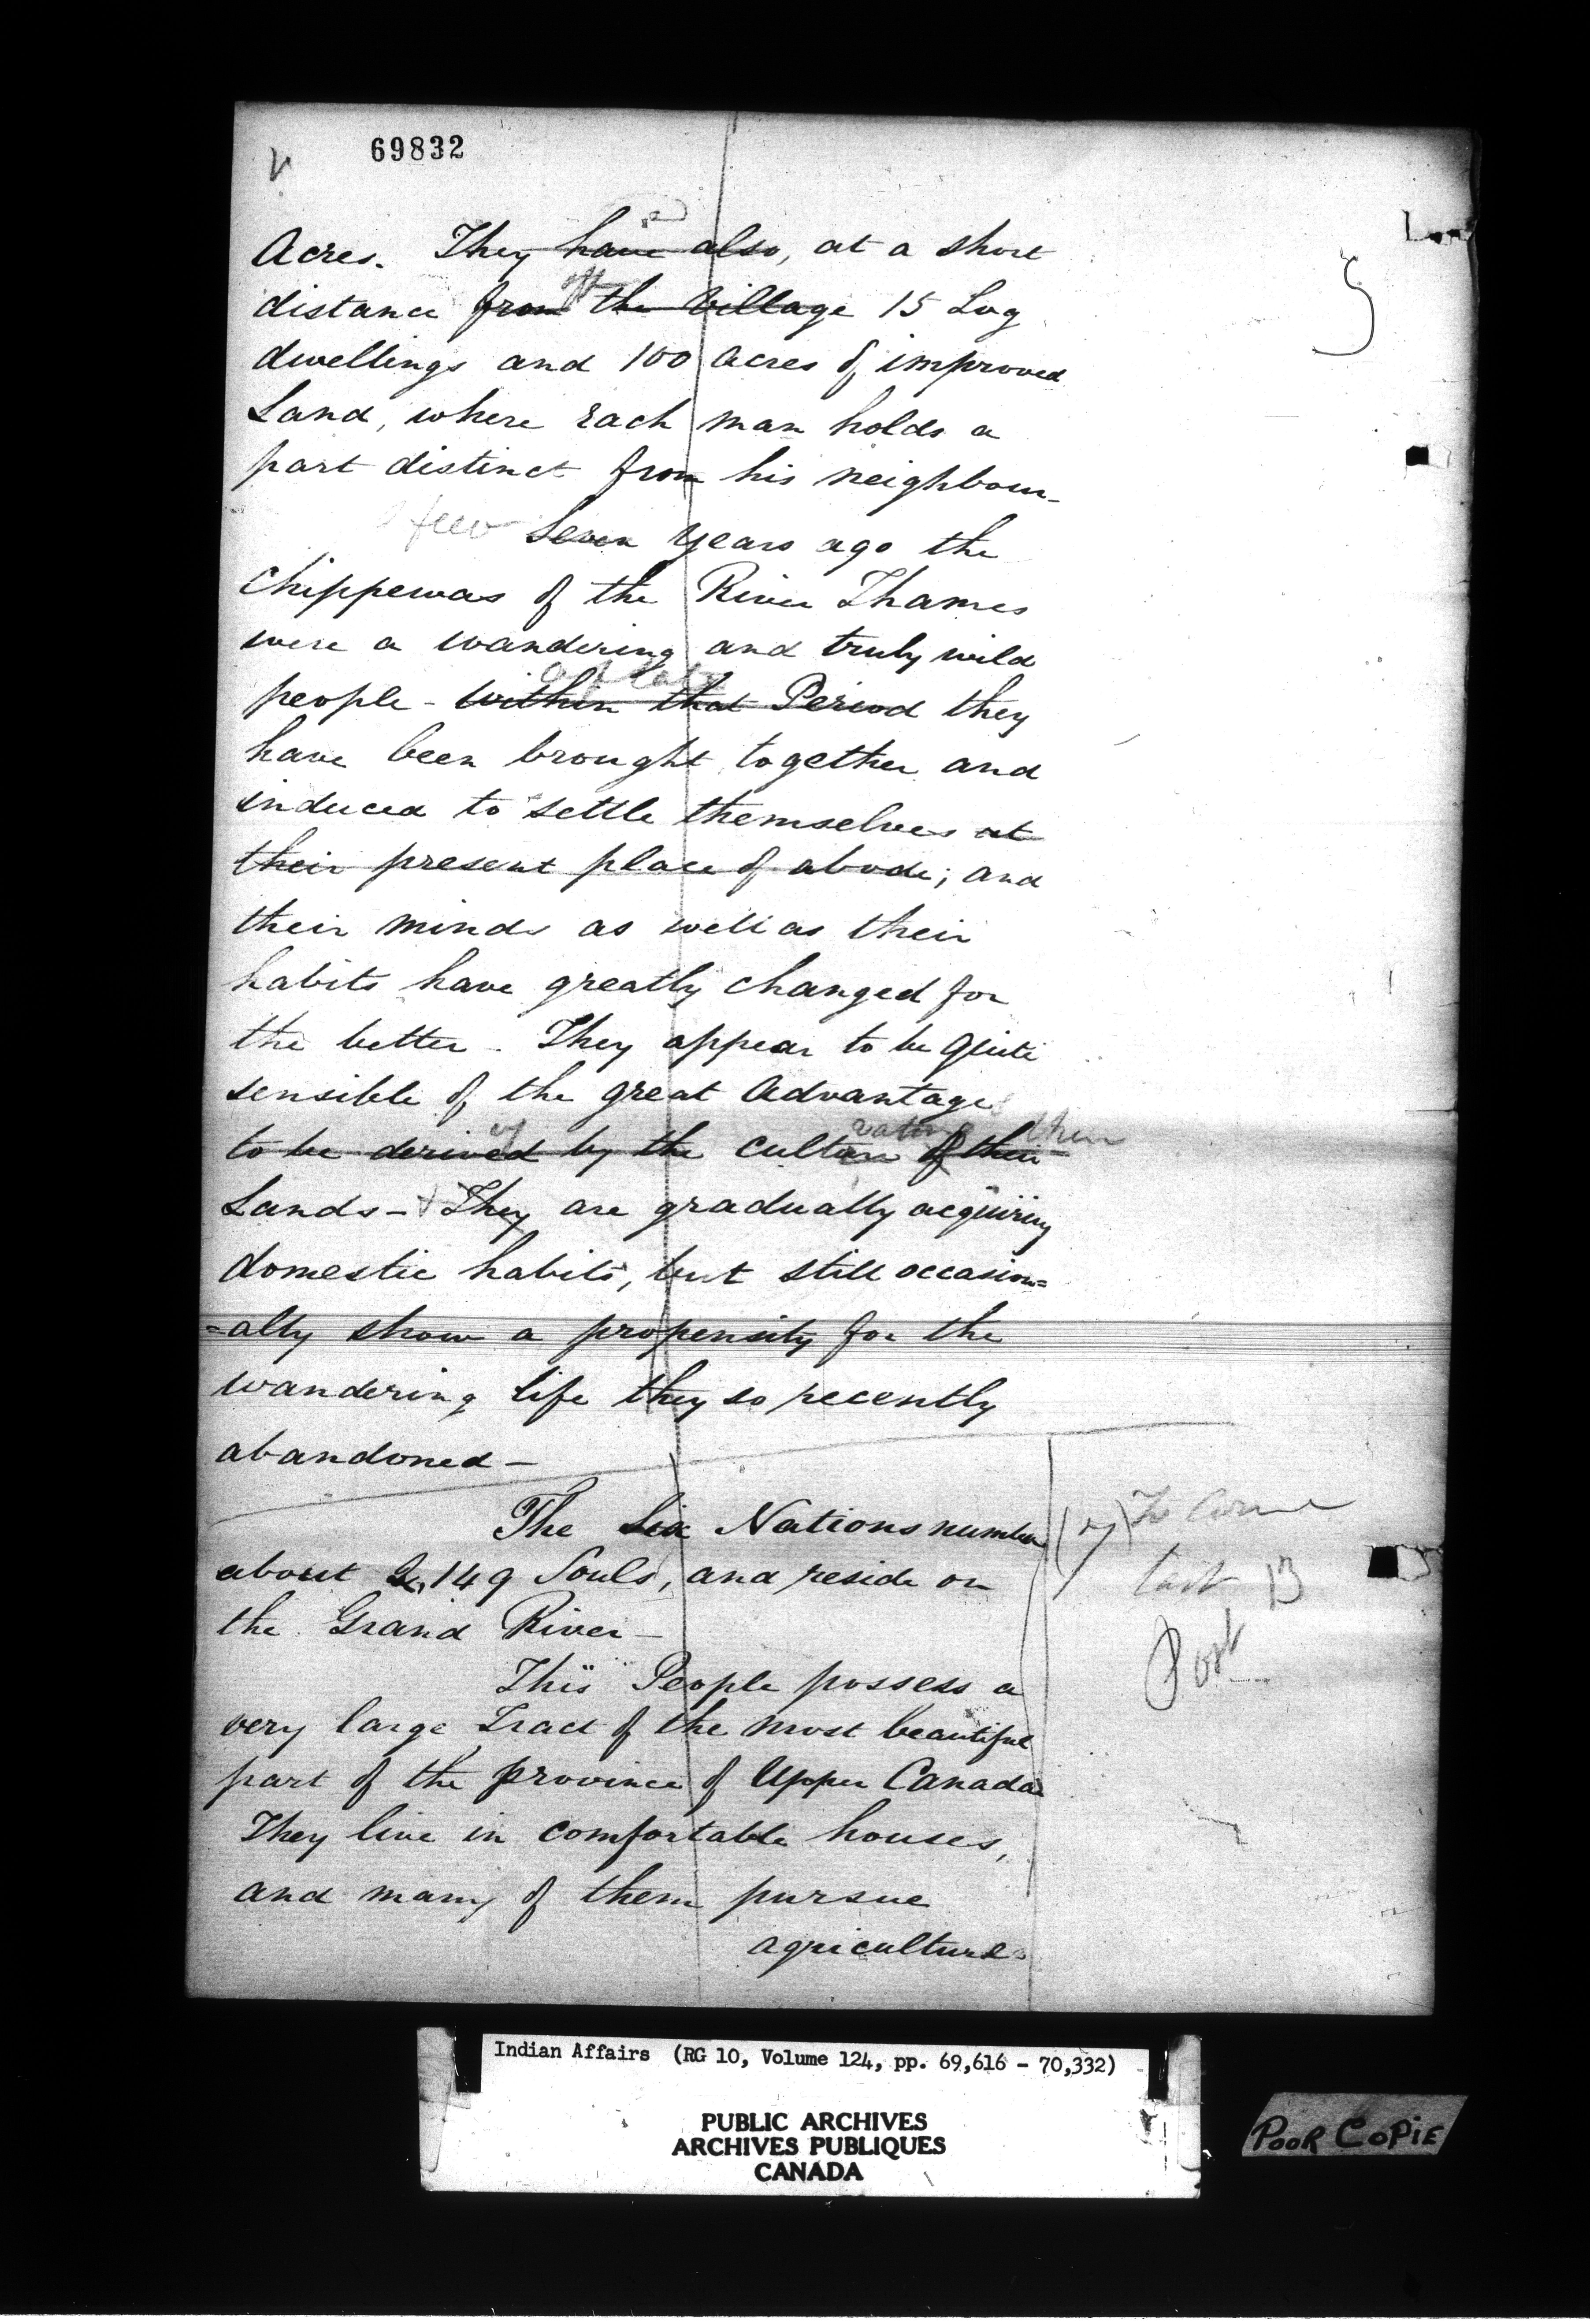 69832
Acres. They have also, at a short
off
distance from the Village 15 Log
dwellings and 100 acres of improved
Land, where each man holds a
part distinct from his neighbour-
few Seven years ago the
Chippewas of the River Thames
were a wandering and truly wild
of late
people - Within that Period they
have been brought together and
induced to settle themselves at
their present place of abode; and
their minds as well as their
habits have greatly changed for
the better - They appear to be quite
sensible of the great Advantages
of vating their
to be derived by the culture of their
Lands - & They are gradually acquiring
domestic habits, but still occasion=
=ally show a propensity for the
wandering life they so recently
abandoned -
The Six Nations number
about 2,149 Souls, and reside on
the Grand River -
This People possess a
very large Tract of the most beautiful
part of the province of Upper Canada
They live in comfortable houses,
and many of them pursue
agriculture
To Come
last 13
Post
Indian Affairs (RG 10, Volume 124, pp. 69,616 - 70,332)
PUBLIC ARCHIVES
ARCHIVES PUBLIQUES
CANADA
POOR COPIE